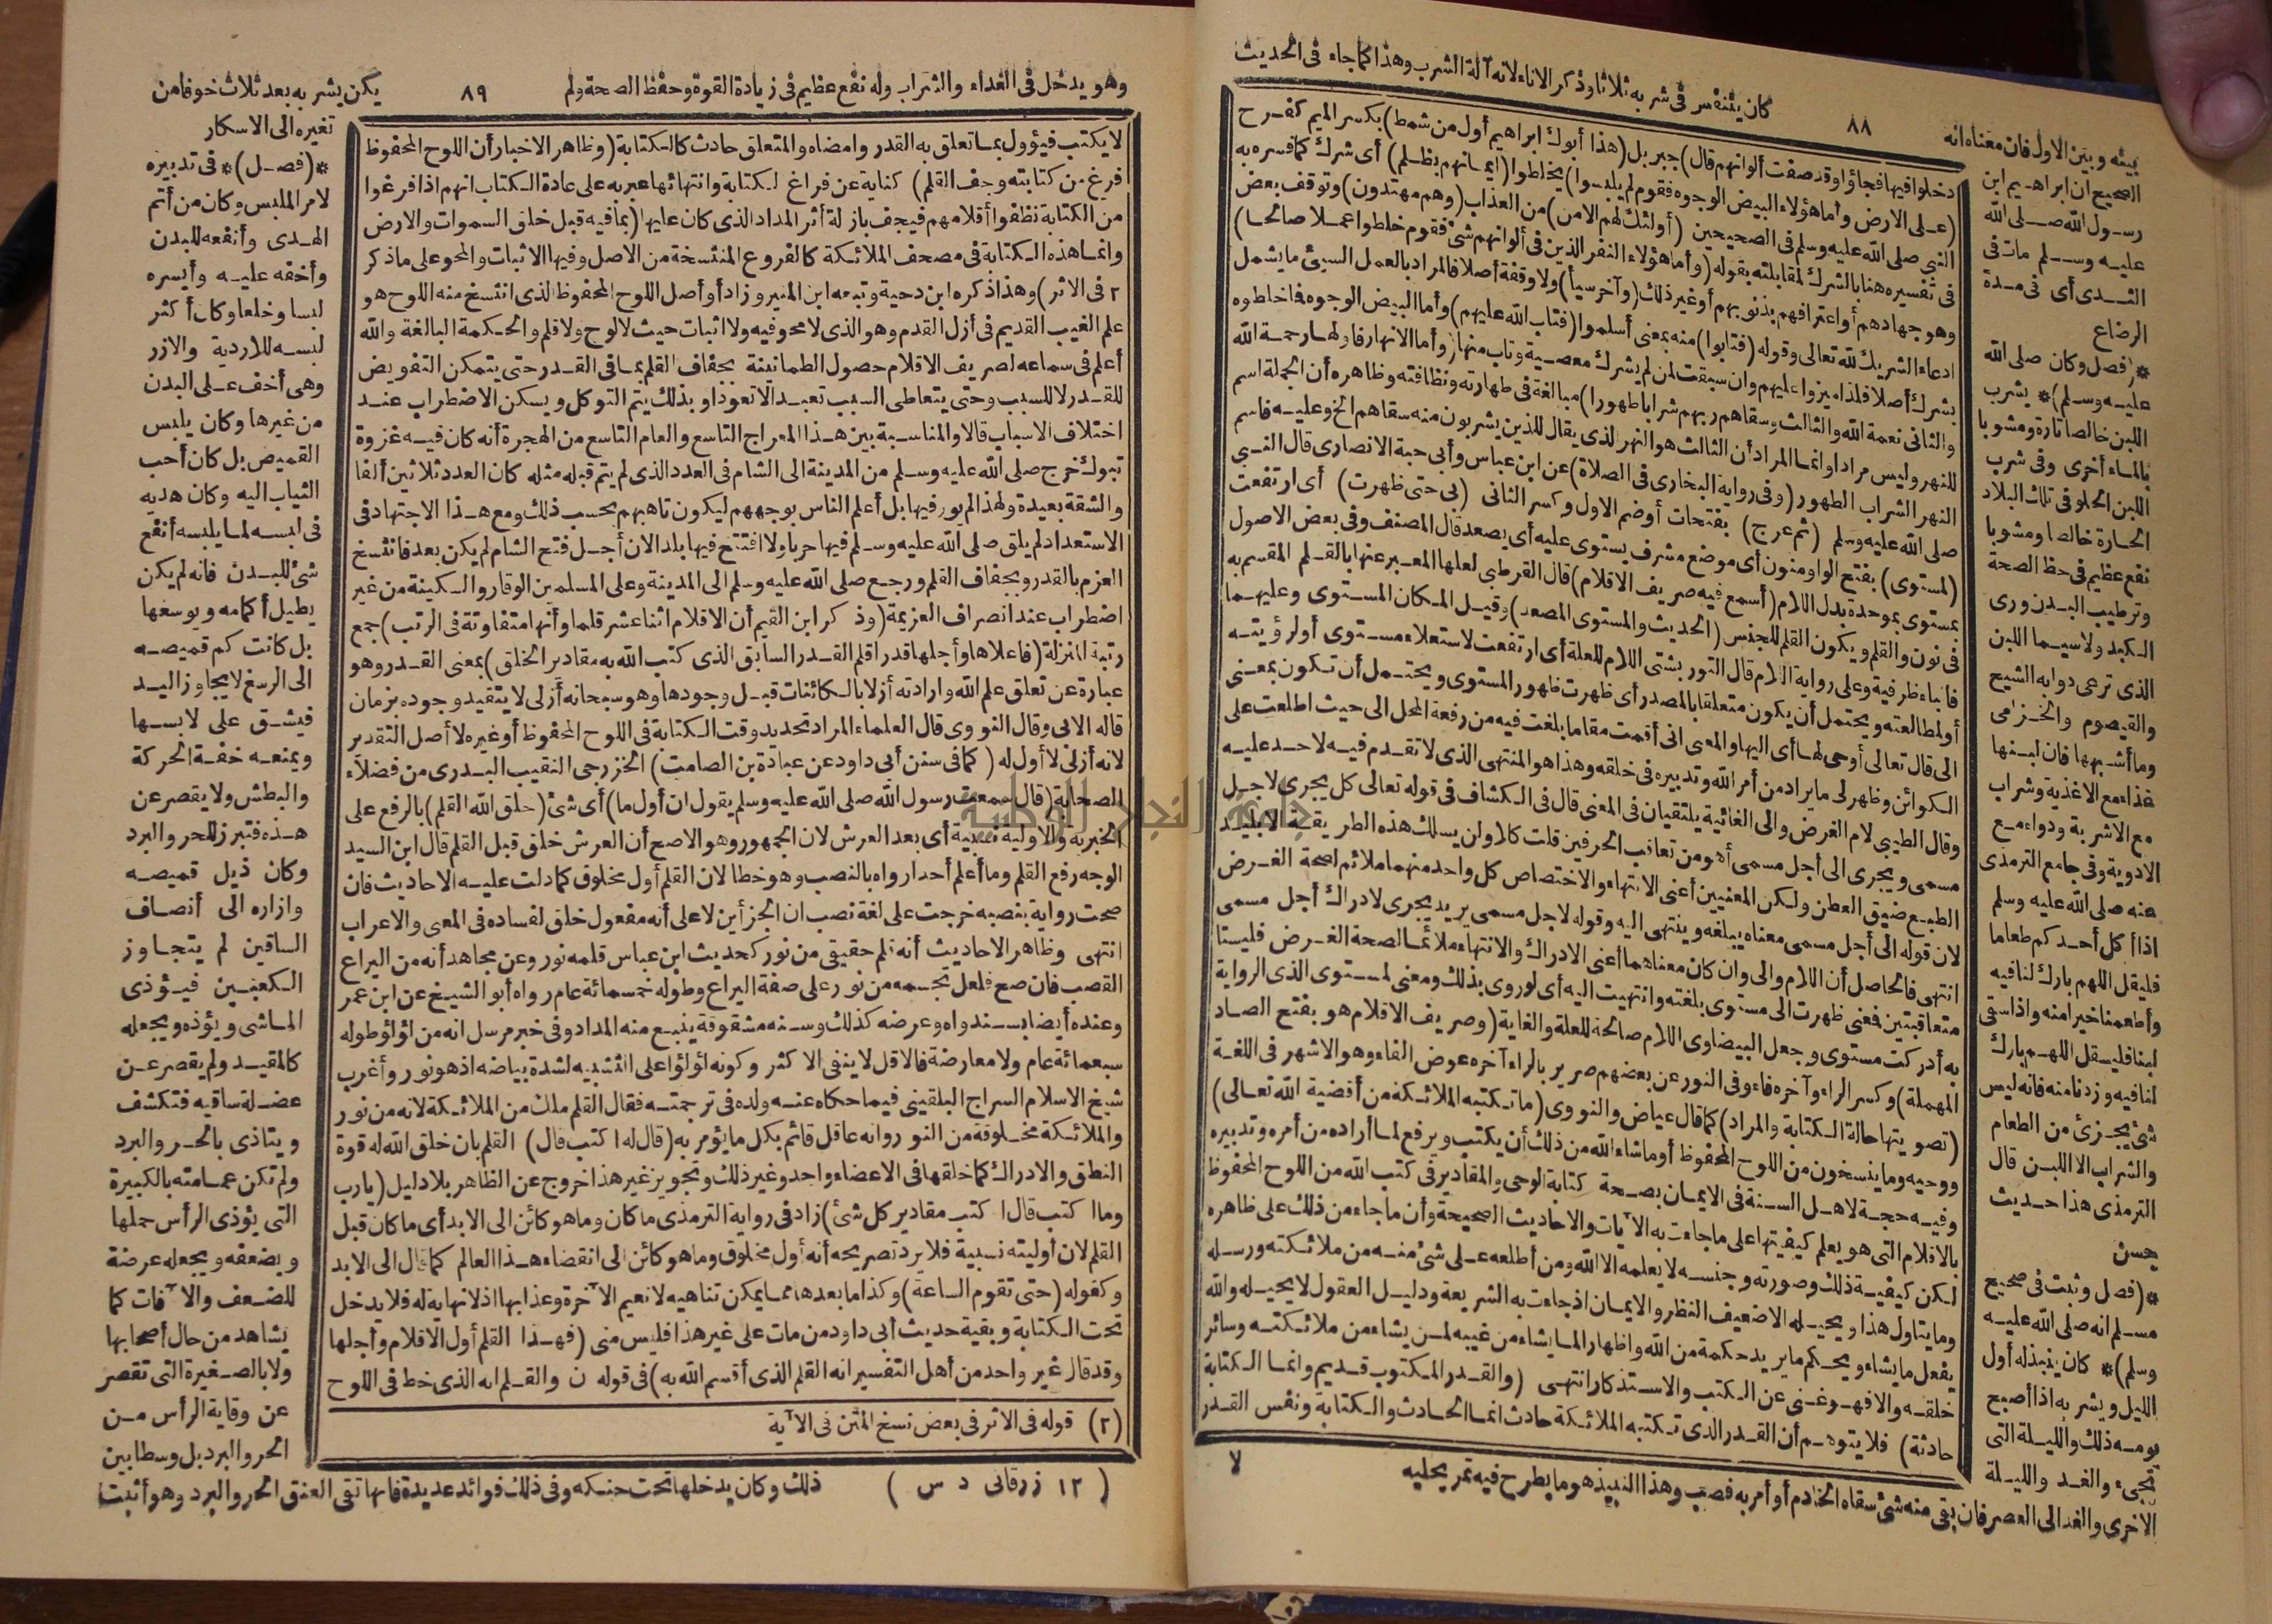 كان يتنفس في شربه ثلاثا وذكر الاناء لانه آلة الشرب وهذا كما جاء في الحديث
٨٨
بينه وبين الاول فان معناه انه
الصحيح ان ابراهيم ابن
رسول الله صلى الله
عليه وسلم مات في
الثدى أى في مدة
الرضاع
*(فصل وكان صلى الله
عليه وسلم)* يشرب
اللبن خالصا تارة ومشوبا
بالماء أخرى وفى شرب
اللبن الحلو في تلك البلاد
الحارة خالصا ومشوبا
نفع عظيم في حفظ الصحة
وترطيب البدن ورى
الكبد ولاسيما اللبن
الذى ترعى دوابه الشيح
والقيصوم والخزامى
وما أشبهها فان لبنها
غذاء مع الاغذية وشراب
مع الاشربة ودواء مع
الادوية وفى جامع الترمذى
عنه صلى الله عليه وسلم
اذا أكل أحدكم طعاما
فليقل اللهم بارك لنا فيه
وأطعمنا خيرا منه واذا سقى
لبنا فليقل اللهم بارك
لنا فيه وزدنا منه فانه ليس
شئ يجزئ من الطعام
والشراب الا اللبن قال
الترمذى هذا حديث
حسن
*(فصل وثبت في صحيح
مسلم انه صلى الله عليه
وسلم)* كان ينبذله أول
الليل ويشربه اذا أصبح
يومه ذلك والليلة التى
تجىء والغد والليلة
الاخرى والغد الى العصر فان بقى منه شئ سقاه الخادم أو أمر به فصب وهذا النبيذ هو ما يطرح فيه تمر يحليه
دخلوا فيها فجاؤا وقد صفت ألوانهم قال) جبريل (هذا أبوك ابراهيم أول من شمط) بكسر الميم كفرح
(على الارض وأما هؤلاء البيض الوجوه فقوم لم يلبسوا) يخلطوا (ايمانهم بظلم) أى شرك كما فسره به
النبي صلى الله عليه وسلم في الصحيحين (أولئك لهم الامن) من العذاب (وهم مهتدون) وتوقف بعض
في تفسيره هنا بالشرك لمقابلته بقوله (وأما هؤلاء النفر الذين في ألوانهم شئ فقوم خلطوا عملا صالحا)
وهو جهادهم أو اعترافهم بذنوبهم أو غير ذلك (وآخر سيأ) ولا وقفة أصلا فالمراد بالعمل السيئ ما يشمل
ادعاء الشريك لله تعالى وقوله (فتابوا) منه بمعنى أسلموا (فتاب الله عليهم) وأما البيض الوجوه فما خاطوه
بشرك أصلا فلذا ميزوا عليهم وان سبقت لمن لم يشرك معصية وتاب منها (وأما الانهار فاولها رحمة الله
والثانى نعمة الله والثالث وسقاهم ربهم شرابا طهورا) مبالغة في طهارته ونظافته وظاهره أن الجملة اسم
للنهر وليس مرادا وانما المراد أن الثالث هو النهر الذى يقال للذين يشربون منه سقاهم الخ وعليه فاسم
النهر الشراب الطهور (وفى رواية البخارى في الصلاة) عن ابن عباس وأبى حبة الانصارى قال النبي
صلى الله عليه وسلم (ثم عرج) بفتحات أو ضم الاول وكسر الثانى (بى حتى ظهرت) أى ارتفعت
(لمستوى) بفتح الواو منون أى موضع مشرف يستوى عليه أى يصعد قال المصنف وفى بعض الاصول
بمستوى بموحدة بدل اللام (أسمع فيه صريف الاقلام) قال القرطبي لعلها المعبر عنها بالقلم المقسم به
في نون والقلم ويكون القلم للجنس (الحديث والمستوى المصعد) وقيل المكان المستوى وعليهما
فالباء ظرفية وعلى رواية اللام قال التوربشتى اللام للعلة أى ارتفعت لاستعلاء مستوى أو لرؤيته
أو لمطالعته ويحتمل أن يكون متعلقا بالمصدر أى ظهرت ظهور المستوى ويحتمل أن تكون بمعنى
الى قال تعالى أوحى لها أى اليها والمعنى انى أقمت مقاما بلغت فيه من رفعة المحل الى حيث اطلعت على
الكوائن وظهر لى ما يراد من أمر الله وتدبيره في خلقه وهذا هو المنتهى الذى لا تقدم فيه لاحد عليه
وقال الطيبى لام الغرض والى الغائية يلتقيان في المعنى قال في الكشاف في قوله تعالى كل يجرى لاجل
مسمى ويجرى الى أجل مسمى أهو من تعاقب الحرفين قلت كلا ولن يسلك هذه الطريقة الا بليد
الطبع ضيق العطن ولكن المعنيين أعنى الانتهاء والاختصاص كل واحد منهما ملائم لصحة الغرض
لان قوله الى أجل مسمى معناه يبلغه وينتهى اليه وقوله لاجل مسمى يريد يجرى لادراك أجل مسمى
انتهى فالحاصل أن اللام والى وان كان معناهما أعنى الادراك والانتهاء ملائما لصحة الغرض فليستا
متعاقبتين فمعنى ظهرت الى مستوى بلغته وانتهيت اليه أى لوروى بذلك ومعنى لمستوى الذى الرواية
به أدركت مستوى وجعل البيضاوى اللام صالحة للعلة والغاية (وصريف الاقلام هو بفتح الصاد
المهملة) وكسر الراء وآخره فاء وفى النور عن بعضهم صرير بالراء آخره عوض الفاء وهو الاشهر في اللغة
(تصويتها حالة الكتابة والمراد) كما قال عياض والنووى (ما تكتبه الملائكة من أقضية الله تعالى)
ووحيه وما ينسخون من اللوح المحفوظ أو ما شاء الله من ذلك أن يكتب ويرفع لما أراده من أمره وتدبيره
وفيه حجة لاهل السنة في الايمان بصحة كتابة الوحى والمقادير في كتب الله من اللوح المحفوظ
بالاقلام التى هو يعلم كيفيتها على ما جاءت به الآيات والاحاديث الصحيحة وأن ما جاء من ذلك على ظاهره
لكن كيفية ذلك وصورته وجنسه لا يعلمه الا الله ومن أطلعه على شئ منه من ملائكته ورسله
وما يتاول هذا ويحيله الا ضعيف النظر والايمان اذ جاءت به الشريعة ودليل العقول لا يحيله والله
يفعل ما يشاء ويحكم ما يريد حكمة من الله واظهارا لما يشاء من غيبه لمن يشاء من ملائكته وسائر
خلقه والا فهو غنى عن الكتب والاستذكار انتهى (والقدر المكتوب قديم وانما الكتابة
حادثة) فلا يتوهم أن القدر الذى تكتبه الملائكة حادث انما الحادث والكتابة ونفس القدر
لا
وهو يدخل في الغذاء والشراب وله نفع عظيم في زيادة القوة وحفظ الصحة ولم
٨٩
يكن يشربه بعد ثلاث خوفا من
لا يكتب فيؤول بما تعلق به القدر وامضاه والمتعلق حادث كالكتابة (وظاهر الاخبار أن اللوح المحفوظ
فرغ من كتابته وجف القلم) كناية عن فراغ الكتابة وانتهائها عبر به على عادة الكتاب انهم اذا فرغوا
من الكتابة نظفوا أقلامهم فيجف بازلة أثر المداد الذى كان عليها (بما فيه قبل خلق السموات والارض
وانما هذه الكتابة في مصحف الملائكة كالفروع المنتسخة من الاصل وفيها الاثبات والمحو على ما ذكر
٢ في الاثر) وهذا ذكره ابن دحية وتبعه ابن المنير وزاد أو أصل اللوح المحفوظ الذى انتسخ منه اللوح هو
علم الغيب القديم في أزل القدم وهو الذى لا محو فيه ولا اثبات حيث لا لوح ولا قلم والحكمة البالغة والله
أعلم في سماعه لصريف الاقلام حصول الطمانينة بجفاف القلم بما في القدر حتى يتمكن التفويض
للقدر لا للسبب وحتى يتعاطى السبب تعبدا لا تعوذا وبذلك يتم التوكل ويسكن الاضطراب عند
اختلاف الاسباب قالا والمناسبة بين هذا المعراج التاسع والعام التاسع من الهجرة أنه كان فيه غزوة
تبوك خرج صلى الله عليه وسلم من المدينة الى الشام في العدد الذى لم يتم قبله مثله كان العدد ثلاثين ألفا
والشقة بعيدة ولهذا لم يور فيها بل أعلم الناس بوجههم ليكون تاهبهم بحسب ذلك ومع هذا الاجتهاد في
الاستعداد لم يلق صلى الله عليه وسلم فيها حربا ولا افتتح فيها بلدا لان أجل فتح الشام لم يكن بعد فانفسخ
العزم بالقدر وبجفاف القلم ورجع صلى الله عليه وسلم الى المدينة وعلى المسلمين الوقار والسكينة من غير
اضطراب عند انصراف العزيمة (وذكر ابن القيم أن الاقلام اثنا عشر قلما وأنها متفاوتة في الرتب) جمع
رتبة المنزلة (فاعلاها وأجلها قدرا قلم القدر السابق الذى كتب الله به مقادير الخلق) بمعنى القدر وهو
عبارة عن تعلق علم الله وارادته أزلا بالكائنات قبل وجودها وهو سبحانه أزلى لا يتقيد وجوده بزمان
قاله الابى وقال النووى قال العلماء المراد تحديد وقت الكتابة في اللوح المحفوظ أو غيره لا أصل التقدير
لانه أزلى لا أول له (كما في سنن أبى داود عن عبادة بن الصامت) الخزرجى النقيب البدرى من فضلاء
الصحابة (قال سمعت رسول الله صلى الله عليه وسلم يقول ان أول ما) أى شئ (خلق الله القلم) بالرفع على
الخبرية والاولية نسبية أى بعد العرش لان الجمهور وهو الاصح أن العرش خلق قبل القلم قال ابن السيد
الوجه رفع القلم وما أعلم أحدا رواه بالنصب وهو خطا لان القلم أول مخلوق كما دلت عليه الاحاديث فان
صحت رواية بنصبه خرجت على لغة نصب ان الجزأين لا على أنه مفعول خلق لفساده في المعنى والاعراب
انتهى وظاهر الاحاديث أنه قلم حقيقى من نور كحديث ابن عباس قلمه نور وعن مجاهد أنه من اليراع
القصب فان صح فلعل تجسمه من نور على صفة اليراع وطوله خمسمائة عام رواه أبو الشيخ عن ابن عمر
وعنده أيضا بسند واه وعرضه كذلك وسنه مشقوقة ينبع منه المداد وفى خبر مرسل انه من لؤلؤ طوله
سبعمائة عام ولا معارضة فالاقل لا ينفى الاكثر وكونه لؤلؤا على التشبيه لشدة بياضه اذ هو نور وأغرب
شيخ الاسلام السراج البلقينى فيما حكاه عنه ولده في ترجمته فقال القلم ملك من الملائكة لانه من نور
والملائكة مخلوقة من النور وانه عاقل قائم بكل ما يؤمر به (قال له اكتب قال) القلم بان خلق الله له قوة
النطق والادراك كما خلقها في الاعضاء واحد وغير ذلك وتجويز غير هذا خروج عن الظاهر بلا دليل (يارب
وما اكتب قال اكتب مقادير كل شئ) زاد في رواية الترمذى ما كان وما هو كائن الى الابد أى ما كان قبل
القلم لان أوليته نسبية فلا يرد تصريحه أنه أول مخلوق وما هو كائن الى انقضاء هذا العالم كما قال الى الابد
وكقوله (حتى تقوم الساعة) وكذا ما بعدها مما يمكن تناهيه لا نعيم الآخرة وعذابها اذ لا نهاية له فلا يدخل
تحت الكتابة وبقية حديث أبى داود من مات على غير هذا فليس منى (فهذا القلم أول الاقلام وأجلها
وقد قال غير واحد من أهل التفسير انه القلم الذى أقسم الله به) في قوله ن والقلم انه الذى خط في اللوح
(٢) قوله في الاثر في بعض نسخ المتن في الآية
( ١٢ زرقانى د س )
تغيره الى الاسكار
*(فصل)* في تدبيره
لامر الملبس وكان من أتم
الهدى وأنفعه للبدن
وأخفه عليه وأيسره
لبسا وخلعا وكان أكثر
لبسه للاردية والازر
وهى أخف على البدن
من غيرها وكان يلبس
القميص بل كان أحب
الثياب اليه وكان هديه
في لبسه لما يلبسه أنفع
شئ للبدن فانه لم يكن
يطيل أكمامه ويوسعها
بل كانت كم قميصه
الى الرسغ لا يجاوز اليد
فيشق على لابسها
ويمنعه خفة الحركة
والبطش ولا يقصر عن
هذه فتبرز للحر والبرد
وكان ذيل قميصه
وازاره الى أنصاف
الساقين لم يتجاوز
الكعبين فيؤذى
الماشى ويؤذه ويجعله
كالمقيد ولم يقصر عن
عضلة ساقيه فتكشف
ويتاذى بالحر والبرد
ولم تكن عمامته بالكبيرة
التى يؤذى الرأس حملها
ويضعفه ويجعله عرضة
للضعف والآفات كما
يشاهد من حال أصحابها
ولا بالصغيرة التى تقصر
عن وقاية الرأس من
الحر والبرد بل وسطا بين
ذلك وكان يدخلها تحت حنكه وفى ذلك فوائد عديدة فانها تقى العنق الحر والبرد وهو أثبت
جامعة النجاح الوطنية